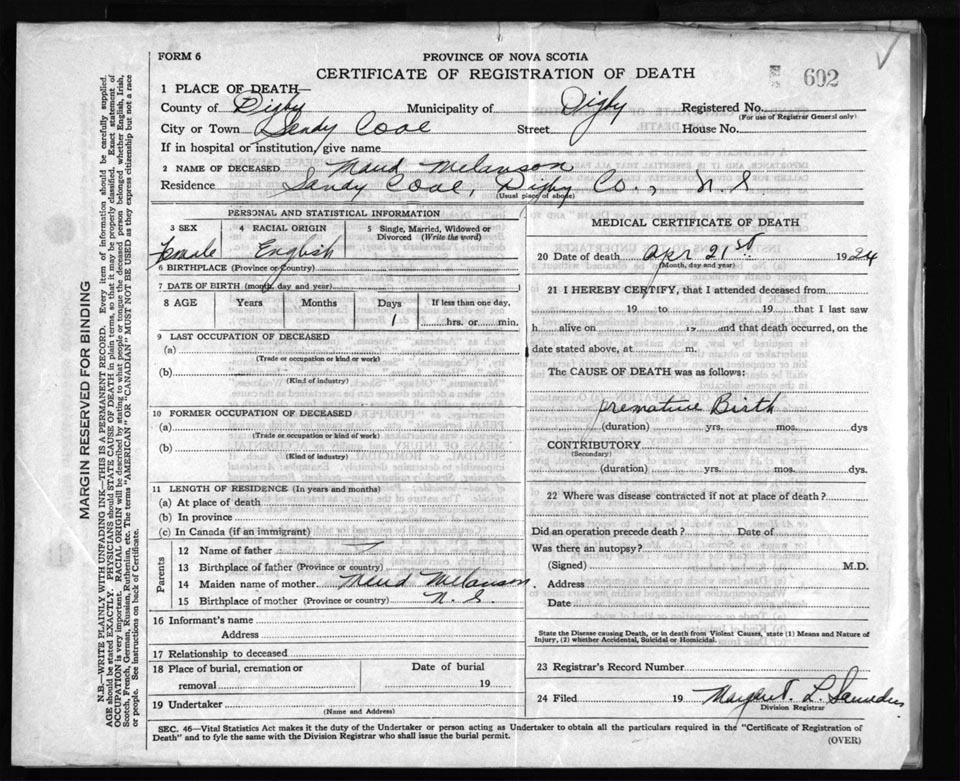 FORM 6
PROVINCE OF NOVA SCOTIA
CERTIFICATE OF REGISTRATION OF DEATH
602
1 PLACE OF DEATH—
County of Digby Municipality of Digby Registered No.
(For use of Registrar General only)
City or Town Sandy Cove Street House No.
If in hospital or institution, give name
2 NAME OF DECEASED Maud Melanson
Residence Sandy Cove, Digby Co., N.S
(Usual place of abode)
PERSONAL AND STATISTICAL INFORMATION
3 SEX 4 RACIAL ORIGIN 5 Single, Married, Widowed or Divorced (Write the word)
Female English
6 BIRTHPLACE (Province or Country)
7 DATE OF BIRTH (month, day and year)
8 AGE Years Months Days If less than one day,
1 hrs. or min.
9 LAST OCCUPATION OF DECEASED
(a)
(Trade or occupation or kind or work)
(b)
(Kind of industry)
10 FORMER OCCUPATION OF DECEASED
(a)
(Trade or occupation or kind of work)
(b)
(Kind of industry)
11 LENGTH OF RESIDENCE (In years and months)
(a) At place of death
(b) In province
(c) In Canada (if an immigrant)
Parents
12 Name of father
13 Birthplace of father (Province or country)
14 Maiden name of mother Maud Melanson.
15 Birthplace of mother (Province or country) N.S.
16 Informant's name
Address
17 Relationship to deceased
18 Place of burial, cremation or removal Date of burial
19
19 Undertaker
(Name and Address)
MEDICAL CERTIFICATE OF DEATH
20 Date of death Apr 21st 1924
(Month, day and year)
21 I HEREBY CERTIFY, that I attended deceased from
19 to 19 that I last saw
h alive on 19 and that death occurred, on the
date stated above, at m.
The CAUSE OF DEATH was as follows:
premature Birth
(duration) yrs. mos. dys
CONTRIBUTORY
(Secondary)
(duration) yrs. mos. dys.
22 Where was disease contracted if not at place of death?
Did an operation precede death? Date of
Was there an autopsy?
(Signed) M.D.
Address
Date
State the Disease causing Death, or in death from Violent Causes, state (1) Means and Nature of
Injury, (2) whether Accidental, Suicidal or Homicidal.
23 Registrar's Record Number
24 Filed 19 Margaret L. Saunders
Division Registrar
SEC. 46—Vital Statistics Act makes it the duty of the Undertaker or person acting as Undertaker to obtain all the particulars required in the "Certificate of Registration of
Death" and to fyle the same with the Division Registrar who shall issue the burial permit.
(OVER)
MARGIN RESERVED FOR BINDING
N.B.—WRITE PLAINLY WITH UNFADING INK—THIS IS A PERMANENT RECORD. Every item of information should be carefully supplied.
AGE should be stated EXACTLY. PHYSICIANS should STATE CAUSE OF DEATH in plain terms, so that it may be properly classified. Exact statement of
OCCUPATION is very important. RACIAL ORIGIN will be described by stating to what people or tongue the deceased person belonged whether English, Irish,
Scotch, French, German, Russian, Ruthenian, etc. The terms "AMERICAN" or "CANADIAN" MUST NOT BE USED as they express citizenship but not a race
or people. See instructions on back of Certificate.